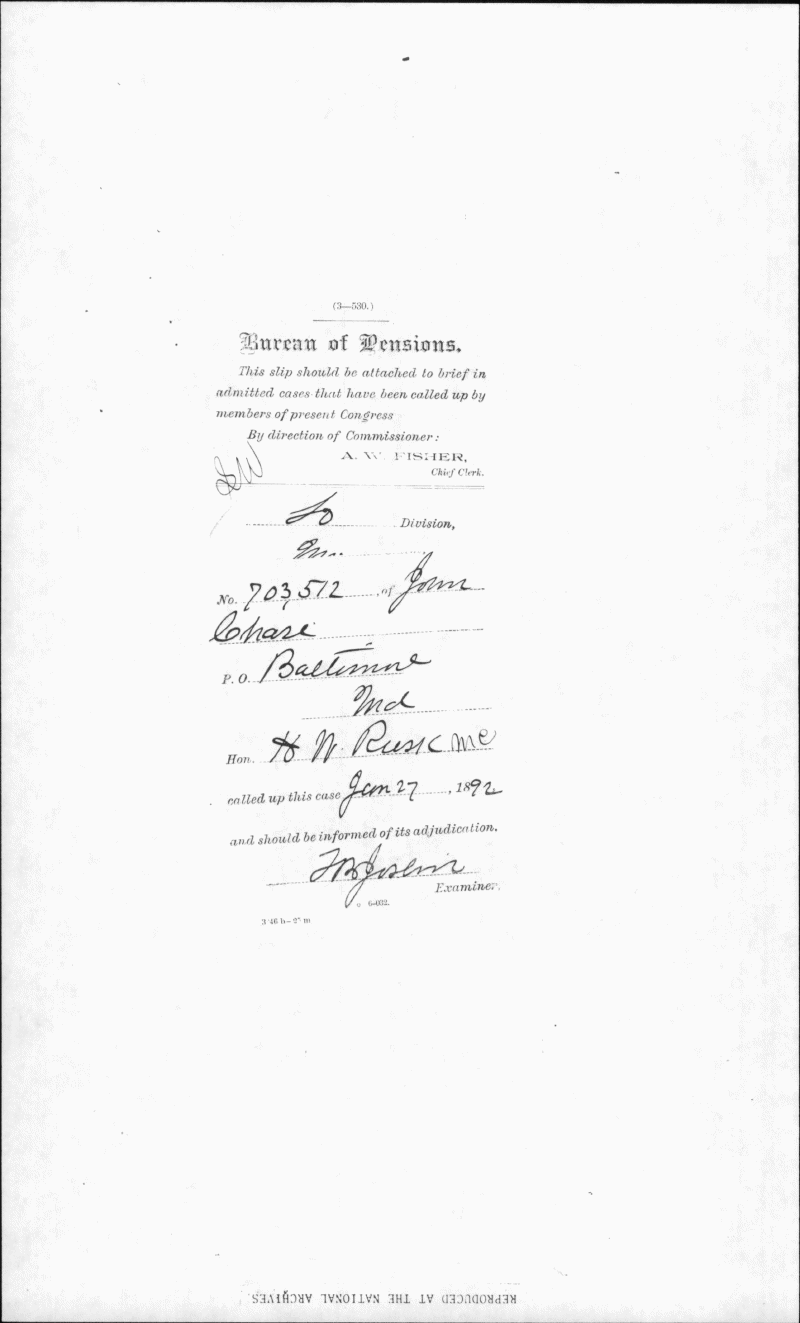 (3—530.)
Bureau of Pensions.
This slip should be attached to brief in
admitted cases that have been called up by
members of present Congress
By direction of Commissioner:
A. W. FISHER,
Chief Clerk.
So Division,
No. 703,512 of John
Chase
P. O. Baltimore
Md
Hon. H W. Rusk MC
called up this case Jan 27, 1892
and should be informed of its adjudication.
Examiner.
6-032.
REPRODUCED AT THE NATIONAL ARCHIVES